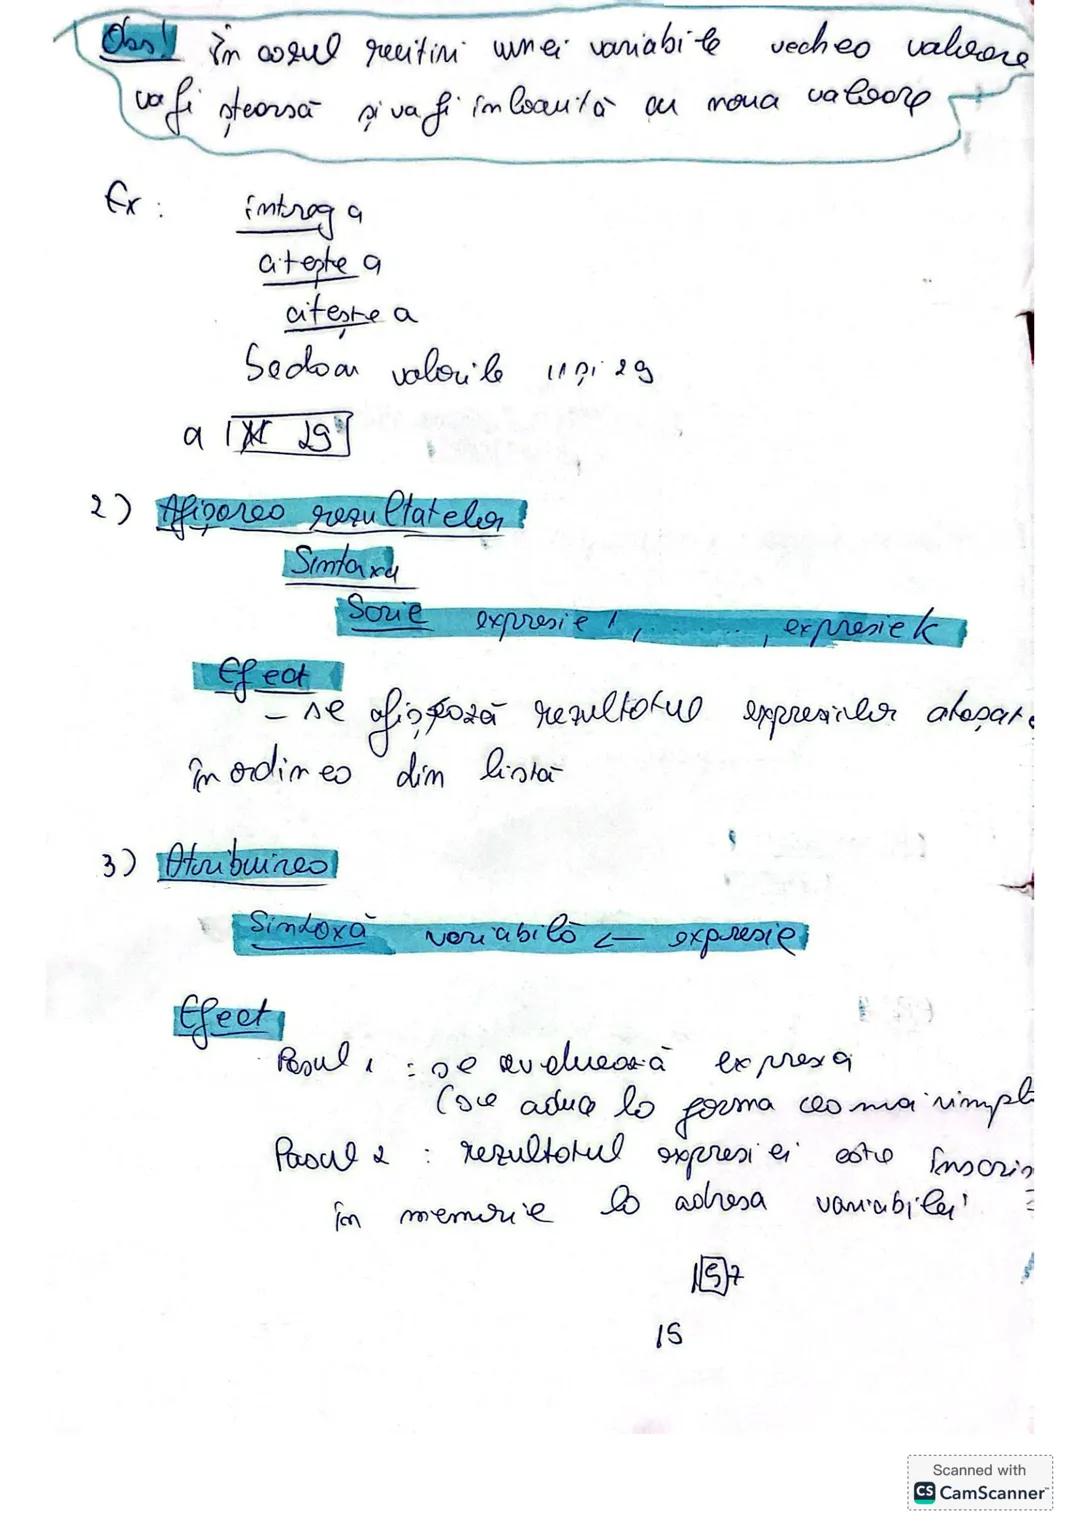 Obs! În cazul recitirii unei variabile vechea valoare
va fi ștearsă și va fi înlocuită cu noua valoare
Ex:
întreg a
citește a
citește a
Se dau valorile 11 și 29
a 11 29
2) Afișarea rezultatelor
Sintaxa
Scrie expresie 1, ........, expresie k
Efect
- se afișează rezultatul expresiilor atașate
în ordinea din listă
3) Atribuirea
Sintaxă variabilă ← expresie
Efect
Pasul 1 : se evaluează expresia
(se aduce la forma cea mai simpl
Pasul 2 : rezultatul expresiei este înscris
în memorie la adresa variabilei
157
15
Scanned with
CS CamScanner